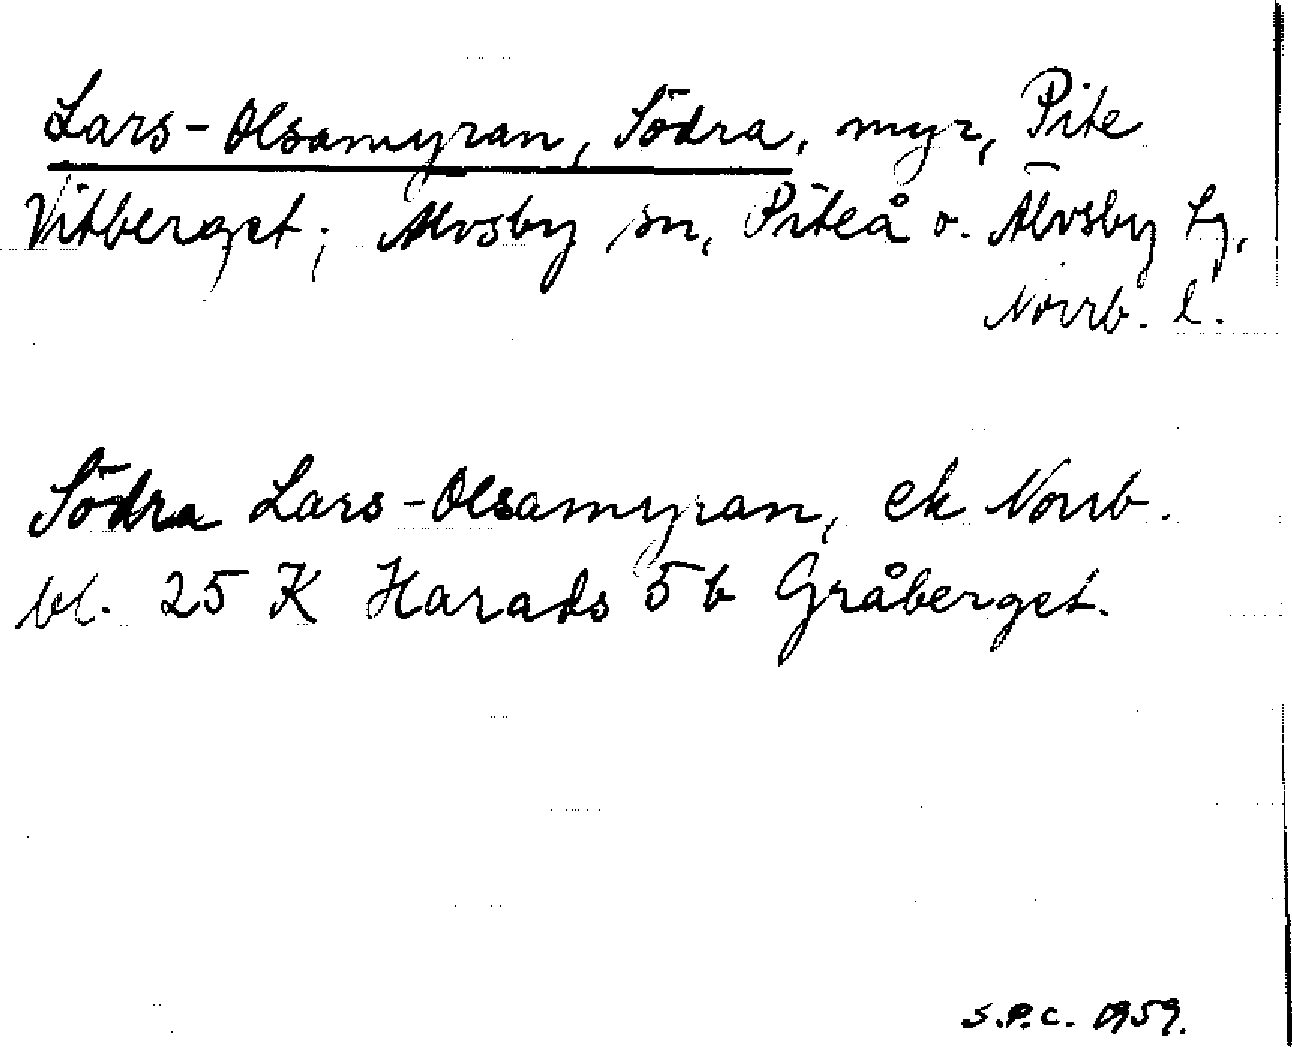 Lars-Olsamyran, Södra, myr, Pite
Vitberget; Älvsby sn, Piteå o. Älvsby tg,
Norrb. l.
Södra Lars-Olsamyran, ek Norrb.
bl. 25 K Harads 5b Gråberget.
S.P.C. 1959.